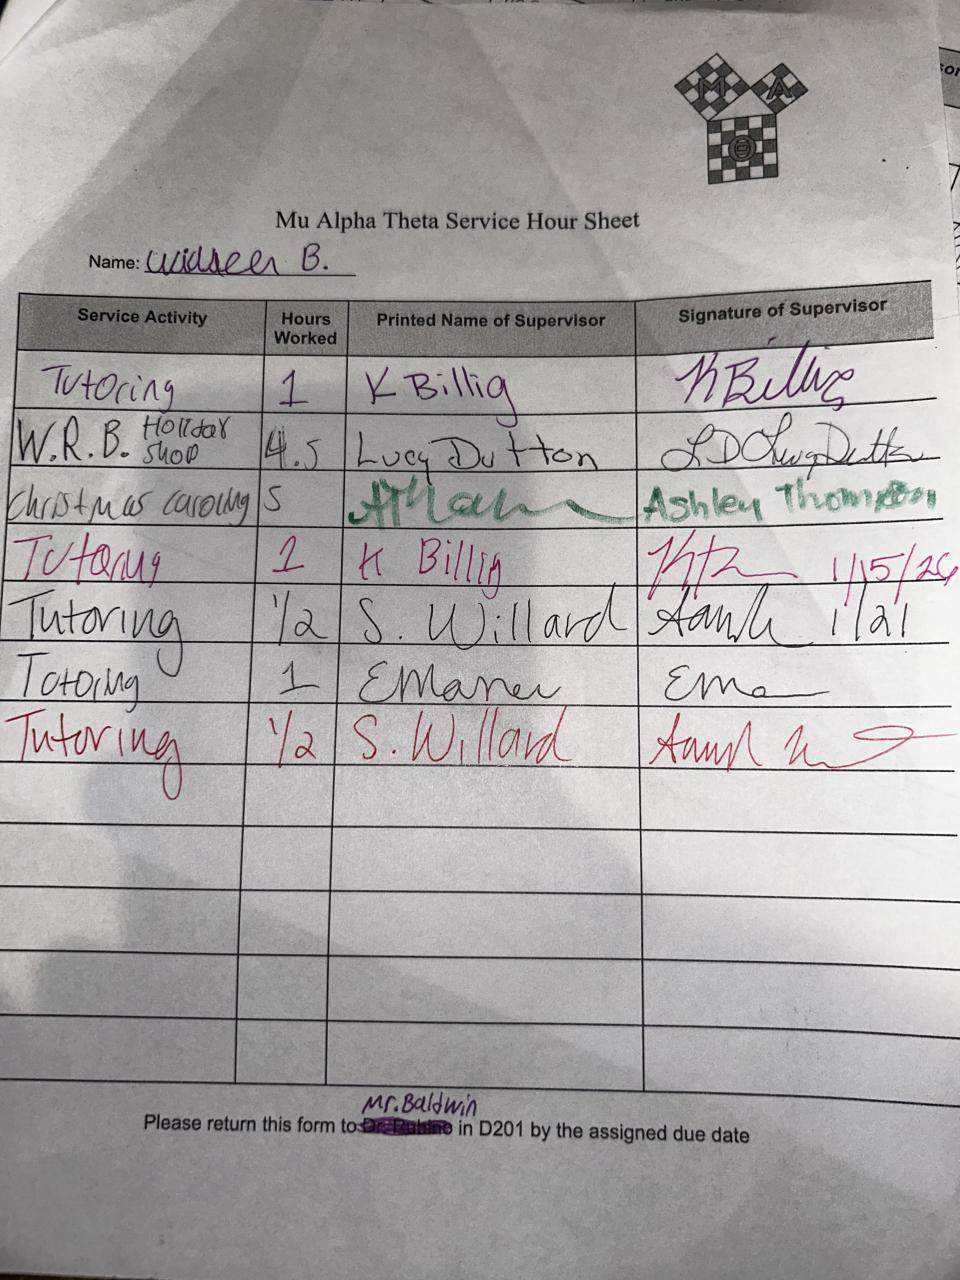 M A
Θ
Mu Alpha Theta Service Hour Sheet
Name: Widseer B.
Service Activity Hours Worked Printed Name of Supervisor Signature of Supervisor
Tutoring 1 K Billig K Billig
W.R.B. Holiday Shop 4.5 Lucy Dutton LD Lucy Dutton
Christmas caroling 5 Ashley Thompson
Tutoring 1 K Billig 1/15/26
Tutoring 1/2 S. Willard 1/21
Tutoring 1 EManer Ema
Tutoring 1/2 S. Willard
Mr. Baldwin
Please return this form to Dr. Rubino in D201 by the assigned due date